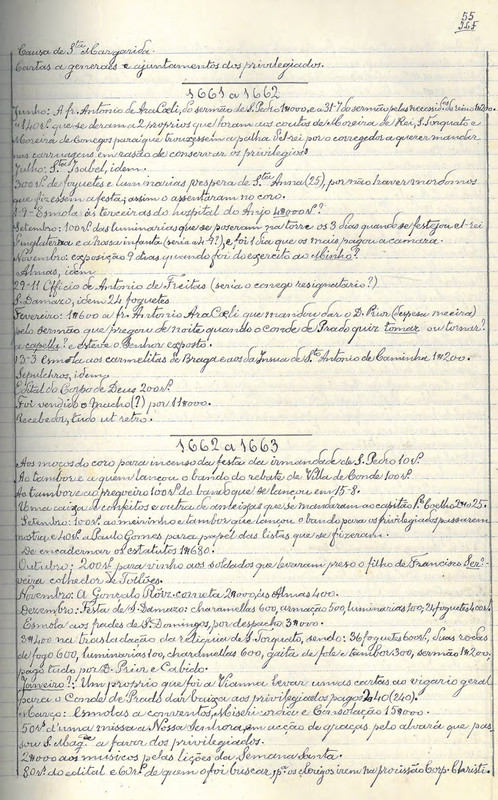 55
365
Causa de S.ta Margarida.
Cartas a generaes e ajuntamentos dos privilegiados.
1661 a 1662
Junho: A fr. Antonio de AraCœli, do sermão de S. Pedro 1$000, e a 31-7 do sermão pelas necessid.es do reino 1$200.
"140 r.s que se deram a 2 proprios que foram aos coutos de Moreira de Rei, S. Torquato e
Moreira de Conegos para que trouxessem a palha. d'el-rei por o corregedor a querer mandar
nas carruagens em rasão de conservar os privilegios
Julho: S.ta Isabel, idem.
300 r.s de foguetes e luminarias vespera de S.ta Anna (25), por não haver mordomos
que fizessem a festa; assim o assentaram no coro.
1-9-Esmola ás terceiras do hospital do Anjo 4$000 r.s?
Setembro: 100 r.s das luminarias que se poseram na torre os 3 dias quando se festejou el-rei
d'Inglaterra e a Nossa infanta (seria a 4-?), e foi 1 dia que os mais pagou a camara.
Novembro: exposição 9 dias quando foi do exercito ao Minho?
Almas, idem
29-11 Officio de Antonio de Freitas (seria o conego resignatario?)
S. Damazo, idem 24 foguetes
Fevereiro: 1$600 a fr. Antonio AraCœli que mandou dar o D. Prior (despesa meeira)
pelo sermão que pregou de noite quando o Conde de Prado quiz tomar ou tornar?
a capella? e esteve o Senhor exposto.
13-3 Esmola aos carmelitas de Braga e aos da Insua de S.to Antonio de Caminha 1$200.
Sepulchros, idem
Edital do Corpo de Deus 200 r.s
Foi vendido o Mucho (?) por 11$000.
Recebedor, tudo ut retro.
1662 a 1663
Aos moços do coro para incenso da festa da irmandade de S. Pedro 10 r.s
Ao tambor e a quem lançou o bando do rebate de Villa do Conde 100 r.s
Ao tambor e ao pregoeiro 100 r.s do bando que se lançou em 15-8.
Uma caixa de confeitos e outra de ameixas que se mandaram ao capitão P.o Coelho 2$025.
Setembro: 100 r.s ao meirinho e tambor que lançou o bando para os privilegiados passarem
mostra, e 40 r.s a Paulo Gomes, para papel das listas que se fizeram.
De encadernar os estatutos 1$680.
Outubro: 200 r.s para vinho aos soldados que levaram preso o filho de Francisco Ser-
veira colhedor de Tolões.
Novembro: A Gonçalo Roiz corneta 2$000, ás Almas 400.
Dezembro: Festa de S. Damazo: charamellas 600, armação 500, luminarias 100; 24 foguetes 400 r.s
Esmola aos frades de S. Domingos, por despacho 3$000.
3$400 na trasladação da reliquia de S. Torquato, sendo: 36 foguetes 600 r.s, duas rodas
de fogo 600, luminarias 100, charamellas 600, gaita de fole e tambor 300, sermão 1$200,
pago tudo por D. Prior e Cabido.
Janeiro?: Um proprio que foi a Vianna levar umas cartas ao vigario geral
para o Conde de Prado dar baixa aos privilegiados pagos 2$40 (240).
Março: Esmolas a conventos, Misericordia e Consolação 15$000.
50 r.s d'uma missa a Nossa Senhora, em acção de graças, pelo alvará que pas-
sou S. Mag.de a favor dos privilegiados.
2$000 aos musicos pelas lições da Semana Santa.
80 r.s do edital e 60 r.s de quem o foi buscar, p.a os clerigos irem na procissão Corp. Christi.